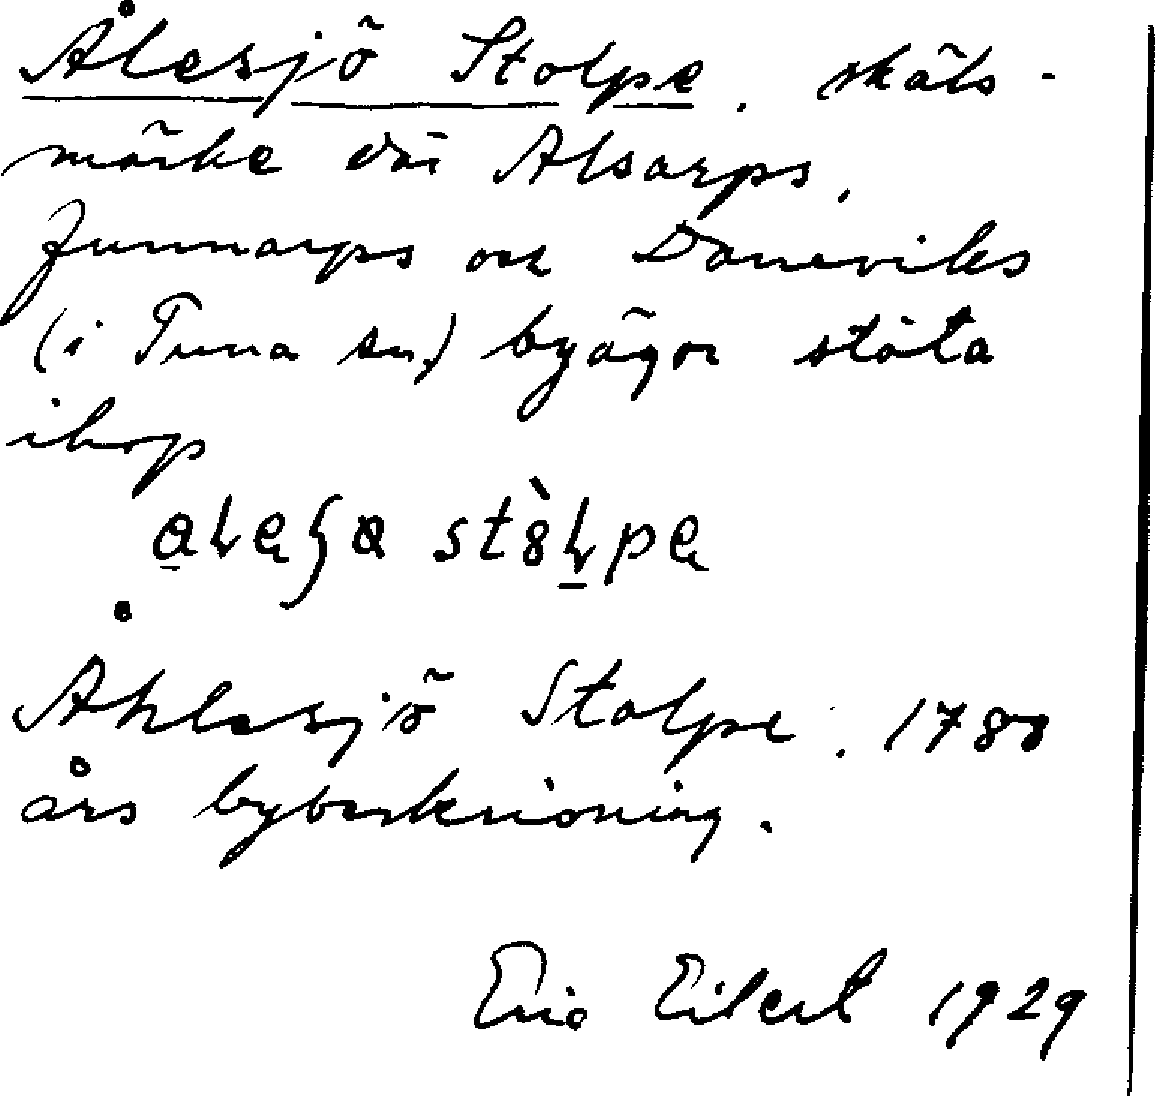 Ålesjö Stolpe. skäls-
märke där Alsarps,
Junnarps och Daneviks
(i Tuna sn.) byägor stöta
ihop
Åhlesjö Stolpe. 1788
års bybeskrivning.
Eric Eilert 1929